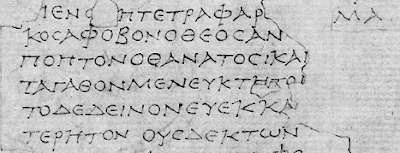 ΛΕΝΟ ΠΤΕΤΡΑΦΑΡ ΜΑ
ΚΟϹΑΦΟΒΟΝΟΘΕΟϹΑΝ
ΠΟΠΤΟΝΟΘΑΝΑΤΟϹΚΑΙ
ΤΑΓΑΘΟΝΜΕΝΕΥΚΤΗΤΟ
ΤΟΔΕΔΕΙΝΟΝΕΥΕΚΚΑ
ΤΕΡΗΤΟΝ ΟΥϹΔΕΚΤΩΝ